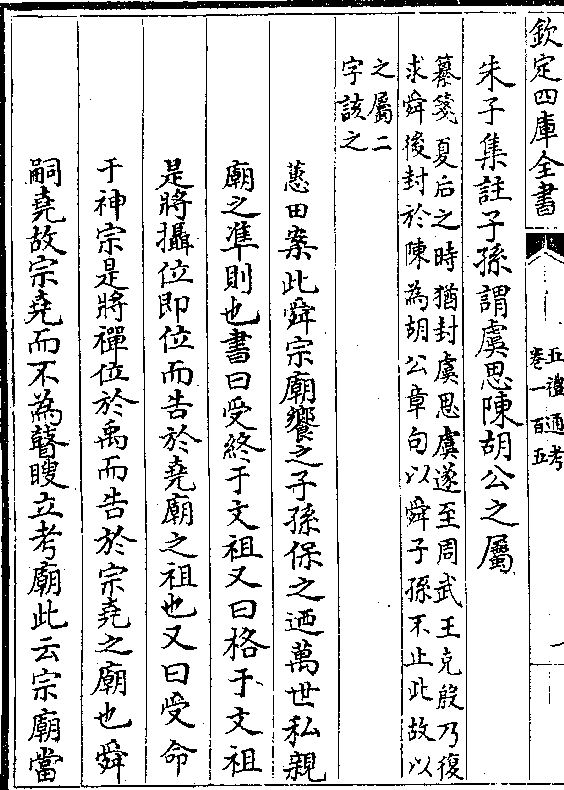 欽定四庫全書
五禮通考
卷一百五
一
朱子集註子孫謂虞思陳胡公之屬
纂箋夏后之時猶封虞思虞遂至周武王克殷乃復
求舜後封於陳為胡公章句以舜子孫不止此故以
之屬二
字該之
蕙田案此舜宗廟饗之子孫保之迺萬世私親
廟之準則也書曰受終于文祖又曰格于文祖
是將攝位即位而告於堯廟之祖也又曰受命
于神宗是將禪位於禹而告於宗堯之廟也舜
嗣堯故宗堯而不為瞽瞍立考廟此云宗廟當